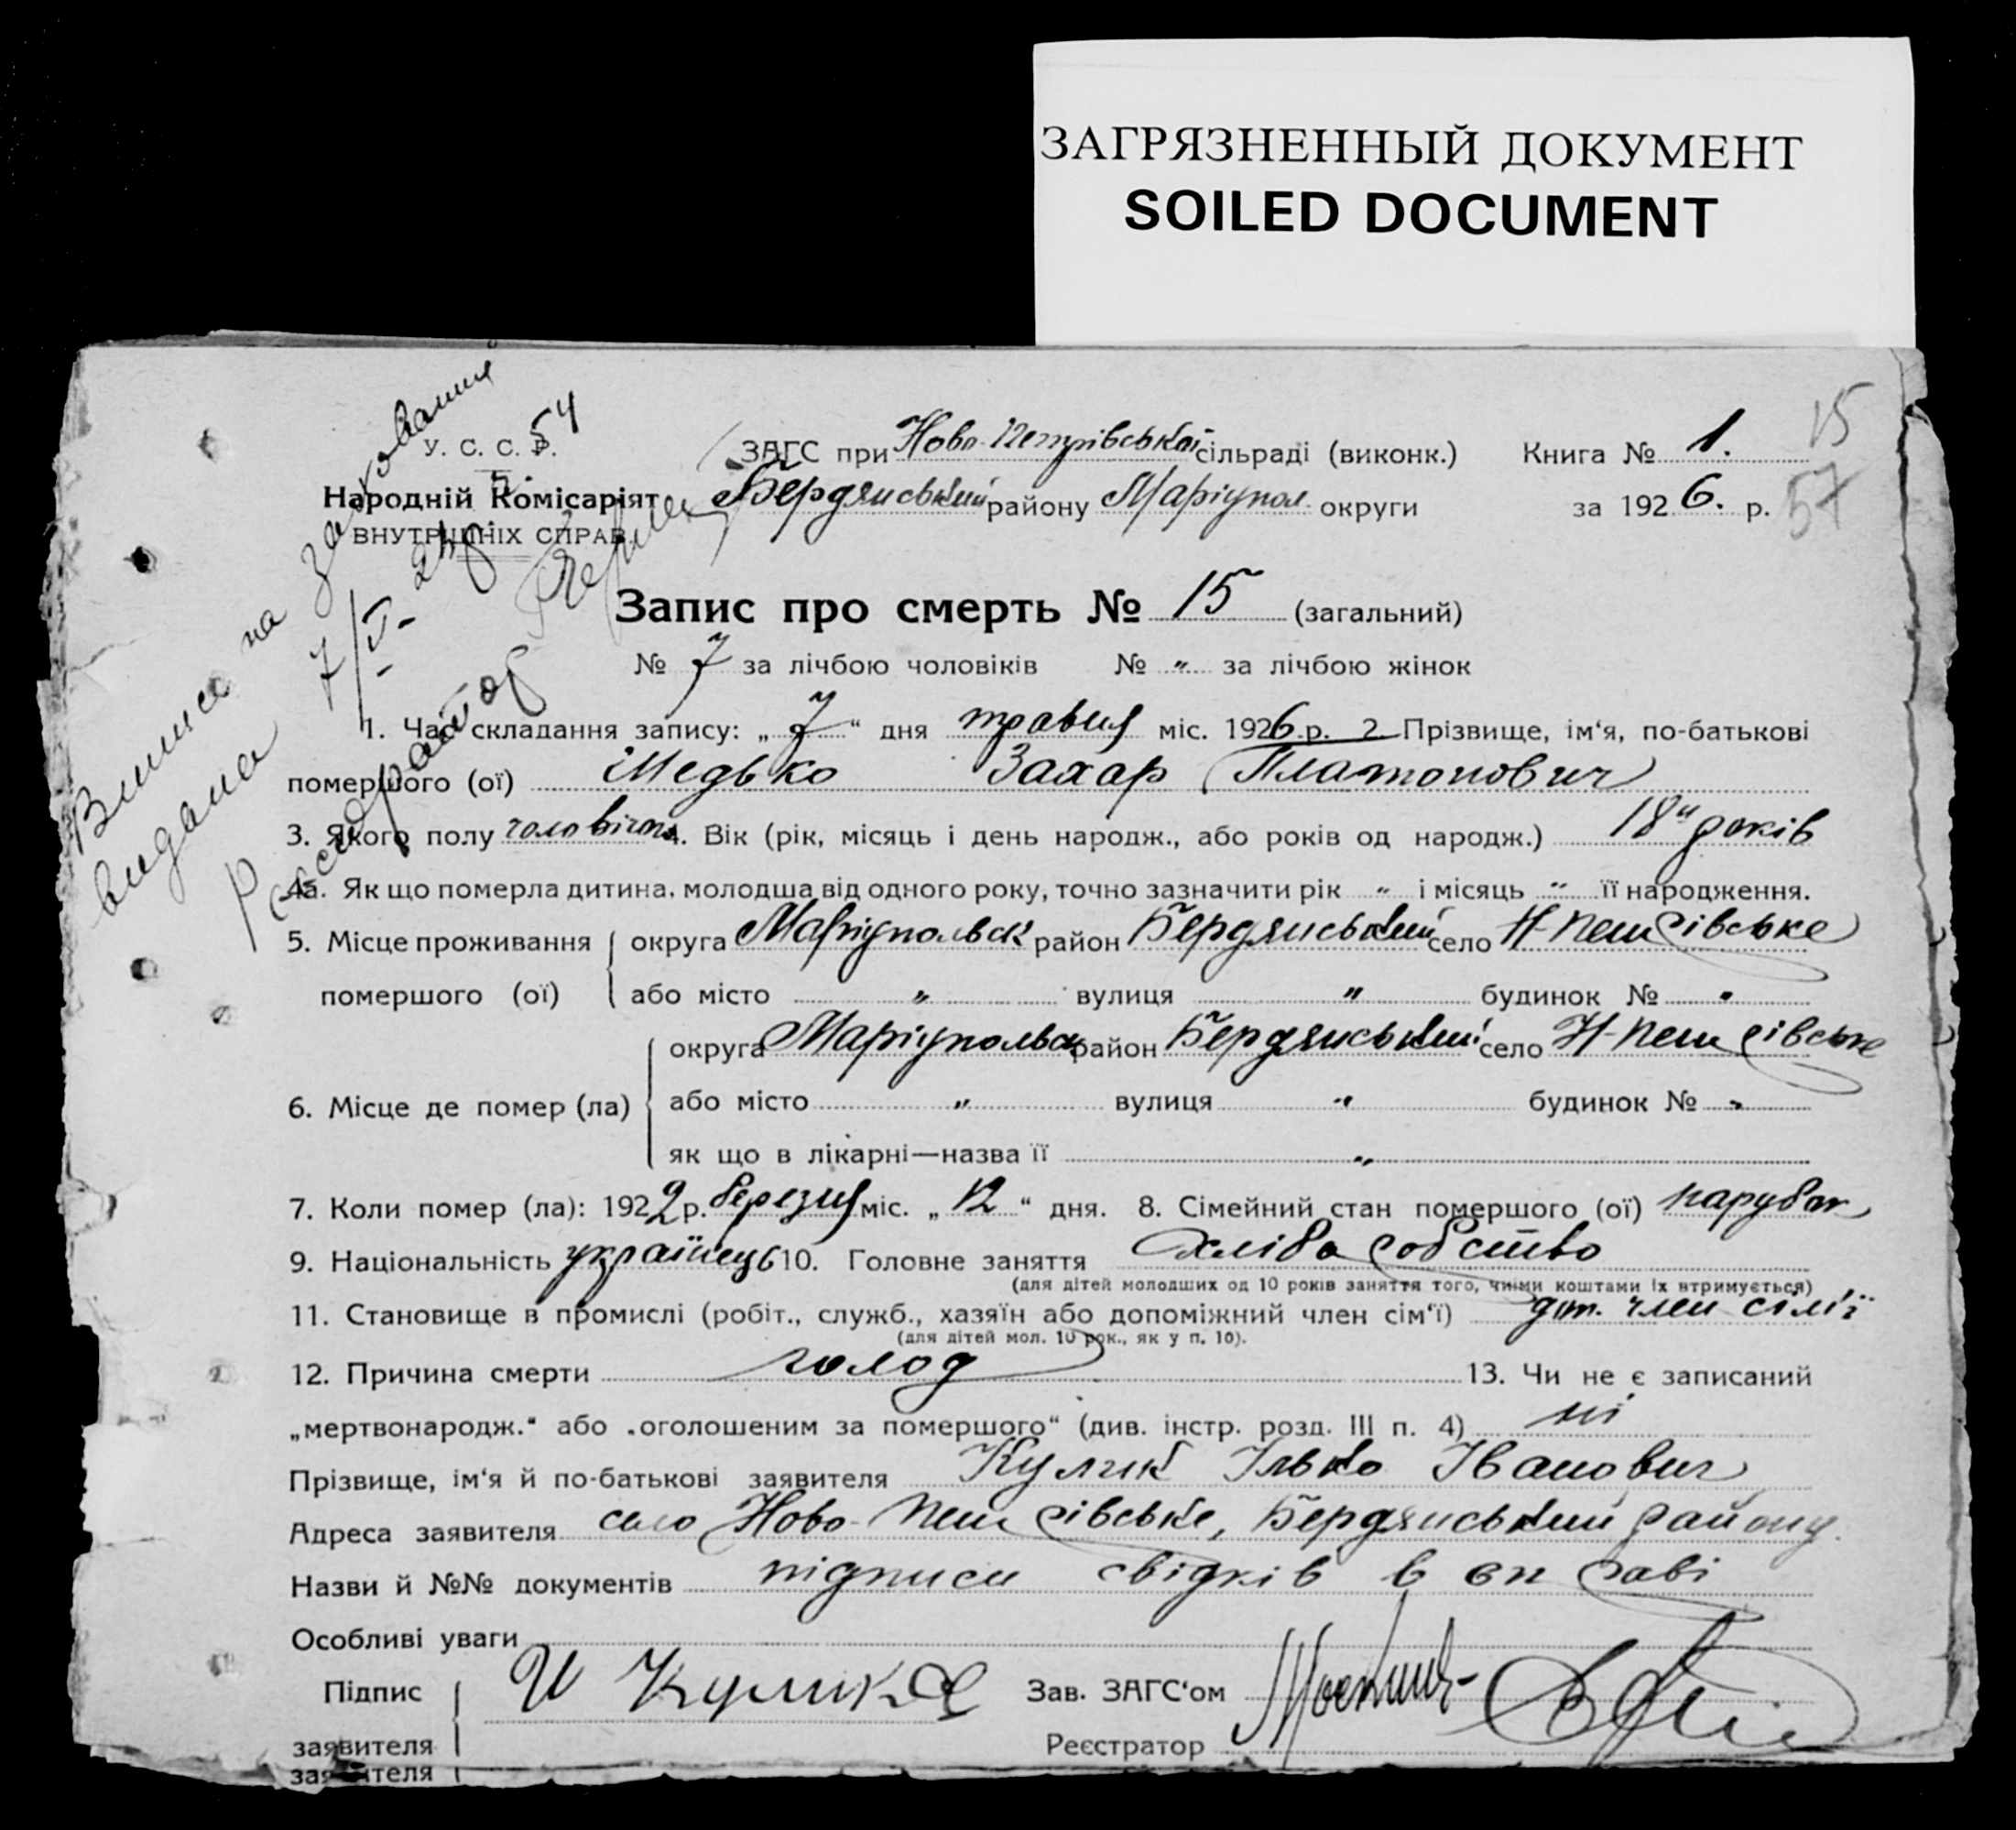 ЗАГРЯЗНЕННЫЙ ДОКУМЕНТ
SOILED DOCUMENT
У. С. С. Р. 54
Народній Комісаріят
ВНУТРІШНІХ СПРАВ
ЗАГС при Ново-Петрівській сільраді (виконк.) Книга № 1. 15
Бердянський району Маріупол. округи за 1926. р. 57
Виписа на
видана 7/V-
Реєстратор
Запис про смерть № 15 (загальний)
№ 7 за лічбою чоловіків № „ за лічбою жінок
1. Час складання запису: „7“ дня травня міс. 1926 р. 2. Прізвище, ім‘я, по-батькові
помершого (ої) Медько Захар Платонович
3. Якого полу чоловічого 4. Вік (рік, місяць і день народж., або років од народж.) 18 років
4а. Як що померла дитина, молодша від одного року, точно зазначити рік „ і місяць „ її народження.
5. Місце проживання округа Маріупольськ район Бердянський село Н-Петрівське
помершого (ої) або місто „ вулиця „ будинок № „
округа Маріупольськ район Бердянський село Н-Петрівське
6. Місце де помер (ла) або місто „ вулиця „ будинок № „
як що в лікарні—назва її „
7. Коли помер (ла): 1922 р. березня міс. „12“ дня. 8. Сімейний стан помершого (ої) парубок
9. Національність українець 10. Головне заняття хліборобство
(для дітей молодших од 10 років заняття того, чиїми коштами їх втримується)
11. Становище в промислі (робіт., служб., хазяїн або допоміжний член сім‘ї) доп. член сім'ї
(для дітей мол. 10 рок., як у п. 10).
12. Причина смерти голод 13. Чи не є записаний
„мертвонародж.“ або „оголошеним за помершого“ (див. інстр. розд. III п. 4) ні
Прізвище, ім‘я й по-батькові заявителя Кулик Ілько Іванович
Адреса заявителя село Ново-Петрівське, Бердянський району.
Назви й №№ документів підписи свідків в справі
Особливі уваги
Підпис И Кулик Зав. ЗАГС‘ом
заявителя Реєстратор
заявителя